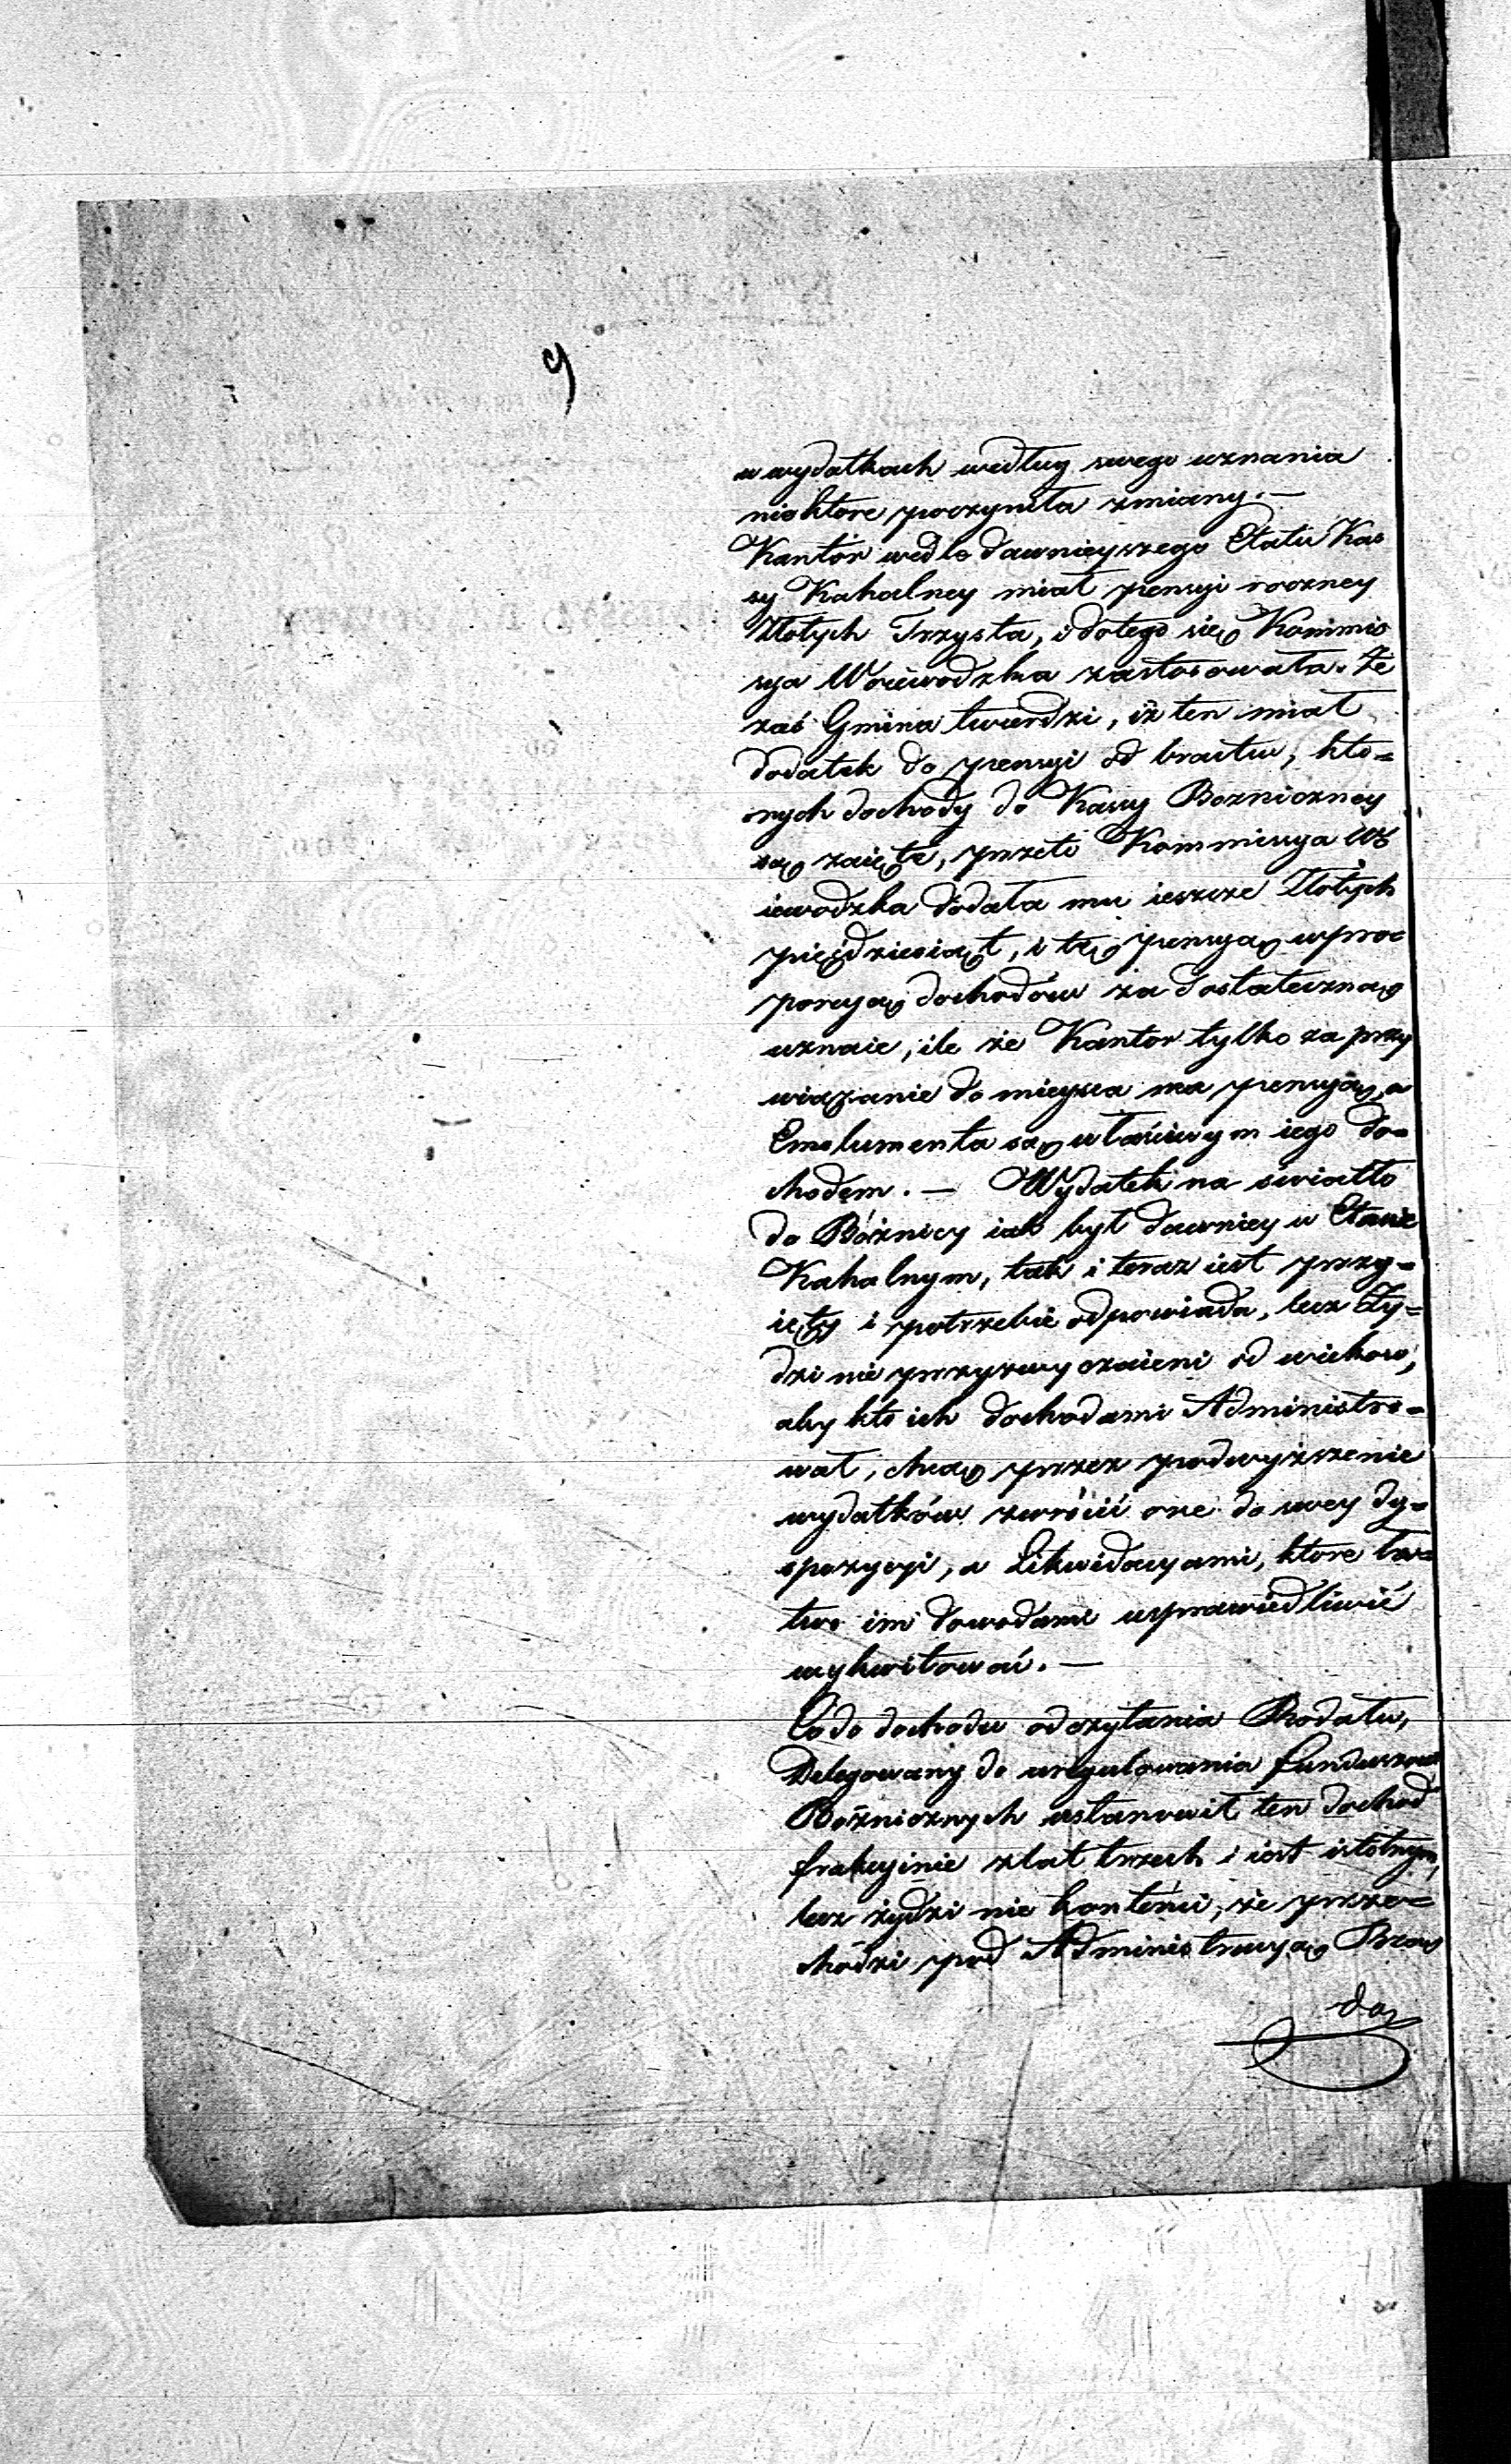 9
w wydatkach według swego uznania
niektore poczyniła zmiany. —
Kantór wedle dawnieyszego Etatu Kas
sy Kahalney miał pensyi roczney
Złotych Trzysta, i dotego się Kommis
sya Woiewodzka zastosowała. Że
zaś Gmina twierdzi, iż ten miał
dodatek do pensyi od bractw, kto=
rych dochody do Kassy Bozniczney
są zaięte, przeto Kommissya Wo
iewodzka dodała mu ieszcze Złotych
pięćdziesiąt, i tę pensyą w pro=
porcyą dochodów za dostateczną
uznaie, ile że Kantor tylko za przy
wiązanie do mieysca ma pensyą, a
Emolumenta są właściwym iego do=
chodem. — Wydatek na światło
do Bóżnicy iak był dawniey w Etacie
Kahalnym, tak i teraz iest przy=
ięty i potrzebie odpowiada, lecz Ży=
dzi nie przyzwyczaieni od wiekow,
aby kto ich dochodami Administro=
wał, chcą przez podwyższenie
wydatków zwrócić one do swey dy=
spozycyi, a Likwidacyami, ktore ła=
two im dowodami usprawiedliwić
wykwitować. —
Co do dochodu od czytania Rodału,
Delegowany do uregulowania funduszow
Bóżnicznych ustanowił ten dochod
frakcyinie z lat trzech i iest istotnym,
lecz żydzi nie kontenci, że prze=
chodzi pod Administracyą Rzą
dą